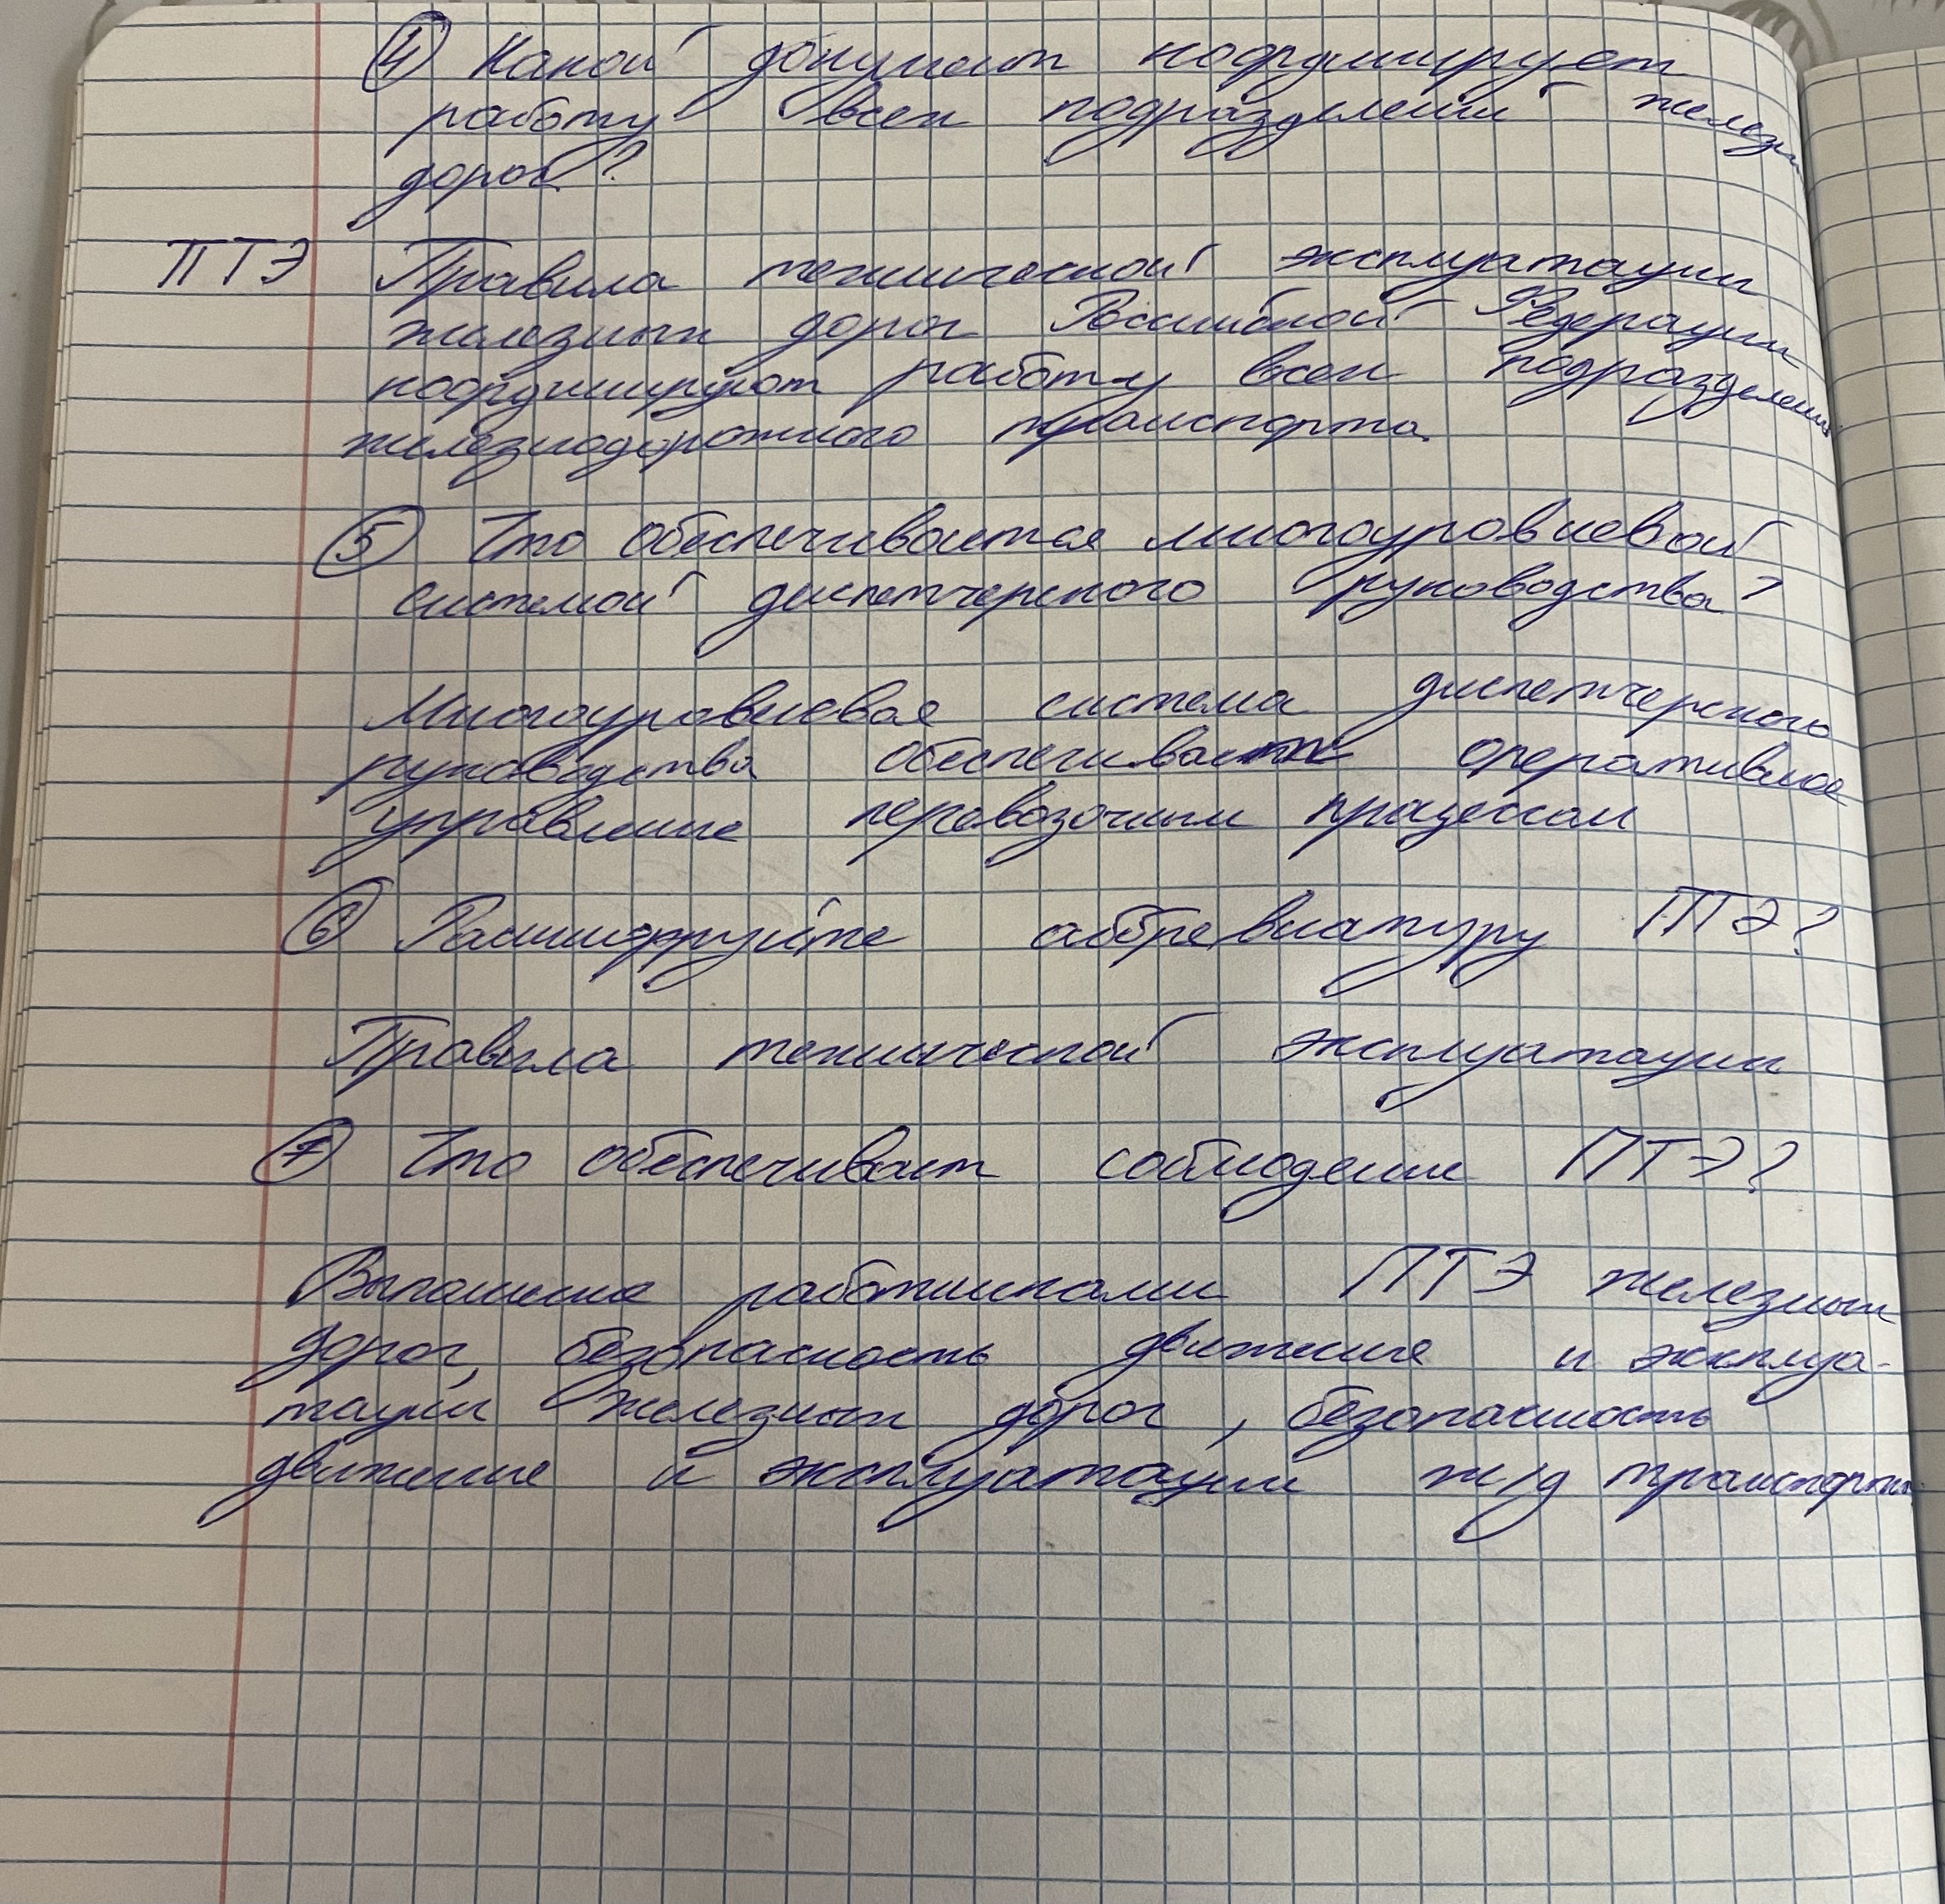 ④ Какой документ координирует
работу всех подразделений железн
дорог?
ПТЭ Правила технической эксплуатации
железных дорог Российской Федерации
координируют работу всех подразделений
железнодорожного транспорта.
⑤ Что обеспечивается многоуровневой
системой диспетчерского руководства?
Многоуровневая система диспетчерского
руководства обеспечивает оперативное
управление перевозочным процессом
⑥ Расшифруйте аббревиатуру ПТЭ?
Правила технической эксплуатации
⑦ Что обеспечивает соблюдение ПТЭ?
Выполнение работниками ПТЭ железных
дорог, безопасность движение и эксплуа-
тации железных дорог, безопасность
движение и эксплуатации ж/д транспорта